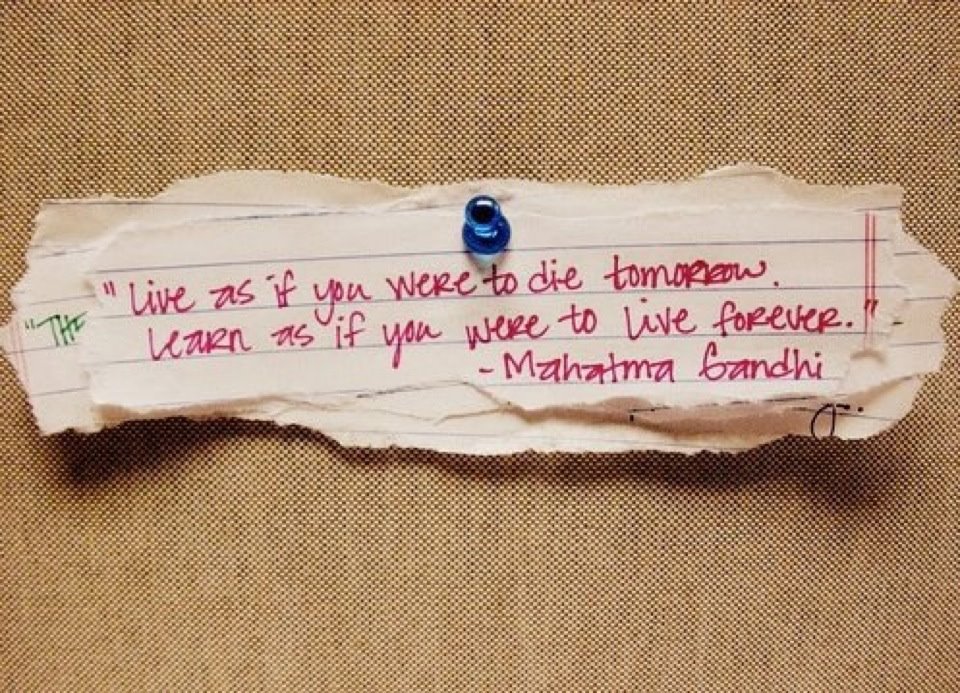 "THE
"Live as if you were to die tomorrow.
Learn as if you were to live forever."
- Mahatma Gandhi